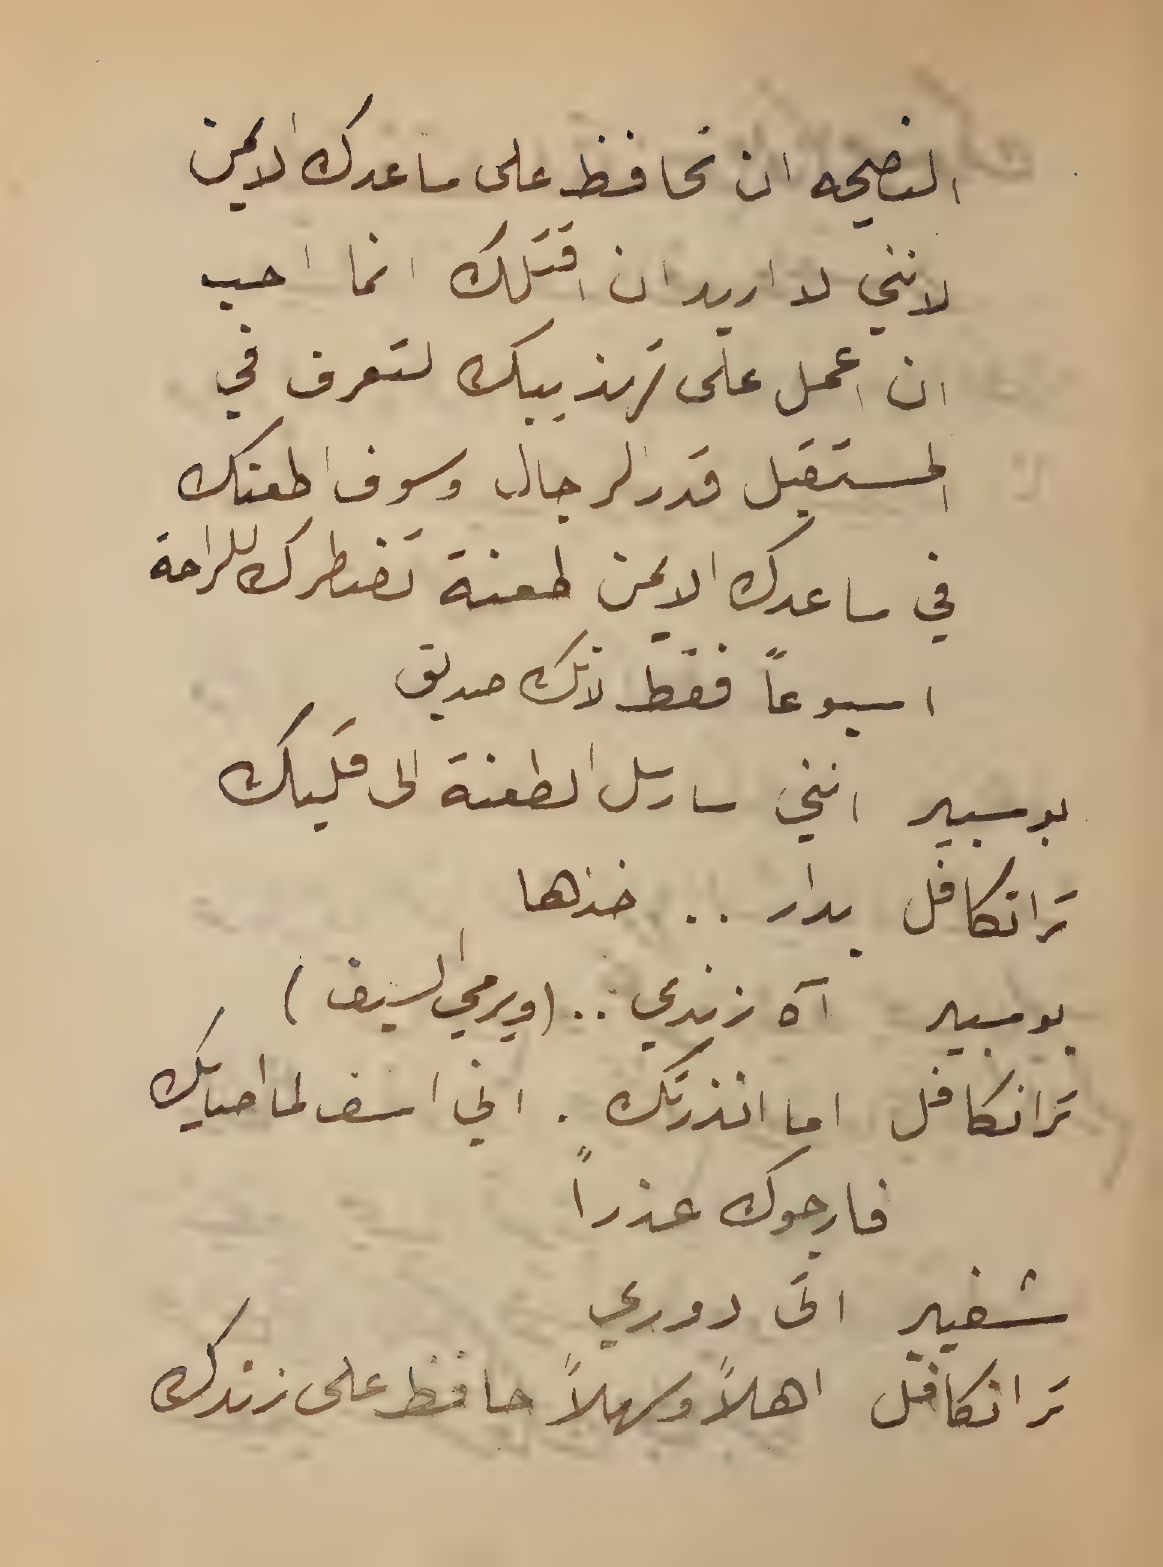 النصيحه ان تحافظ على ساعدك الايمن
لانني لا اريد ان اقتلك انما احب
ان اعمل على تهذيبك لتعرف في
المستقبل قدر الرجال وسوف اطعنك
في ساعدك الايمن طعنة تضطرك للراحة
اسبوعاً فقط لانك صديق
بوسبير انني سارسل الطعنة الى قلبك
ترانكافل بدار .. خذها
بوسبير آه زندي .. (ويرمي السيف)
ترانكافل اما انذرتك . اني اسف لما اصابك
فارجوك عذراً
شفير اتى دوري
ترانكافل اهلاً وسهلاً حافظ على زندك